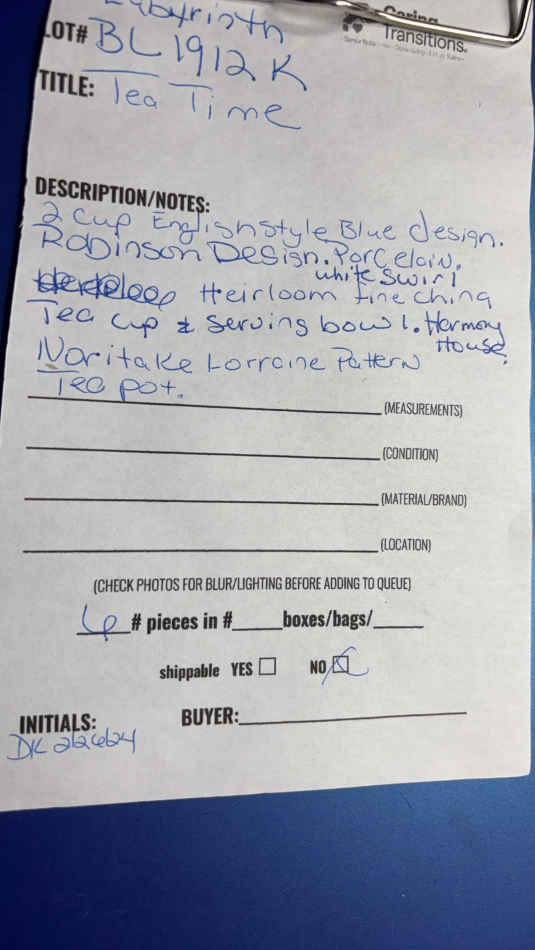 Labyrinth
Caring
Transitions.
LOT# BL1912K
TITLE: Tea Time
DESCRIPTION/NOTES:
2 cup English style Blue design.
Robinson Design. Porcelain.
white swirl
Heirloom fine china
Tea cup & serving bowl. Harmony
House.
Noritake Lorraine Pattern
Tea pot.
(MEASUREMENTS)
(CONDITION)
(MATERIAL/BRAND)
(LOCATION)
(CHECK PHOTOS FOR BLUR/LIGHTING BEFORE ADDING TO QUEUE)
6 # pieces in #_____boxes/bags/_____
shippable YES ☐ NO ☒
INITIALS: BUYER:
DK 22624